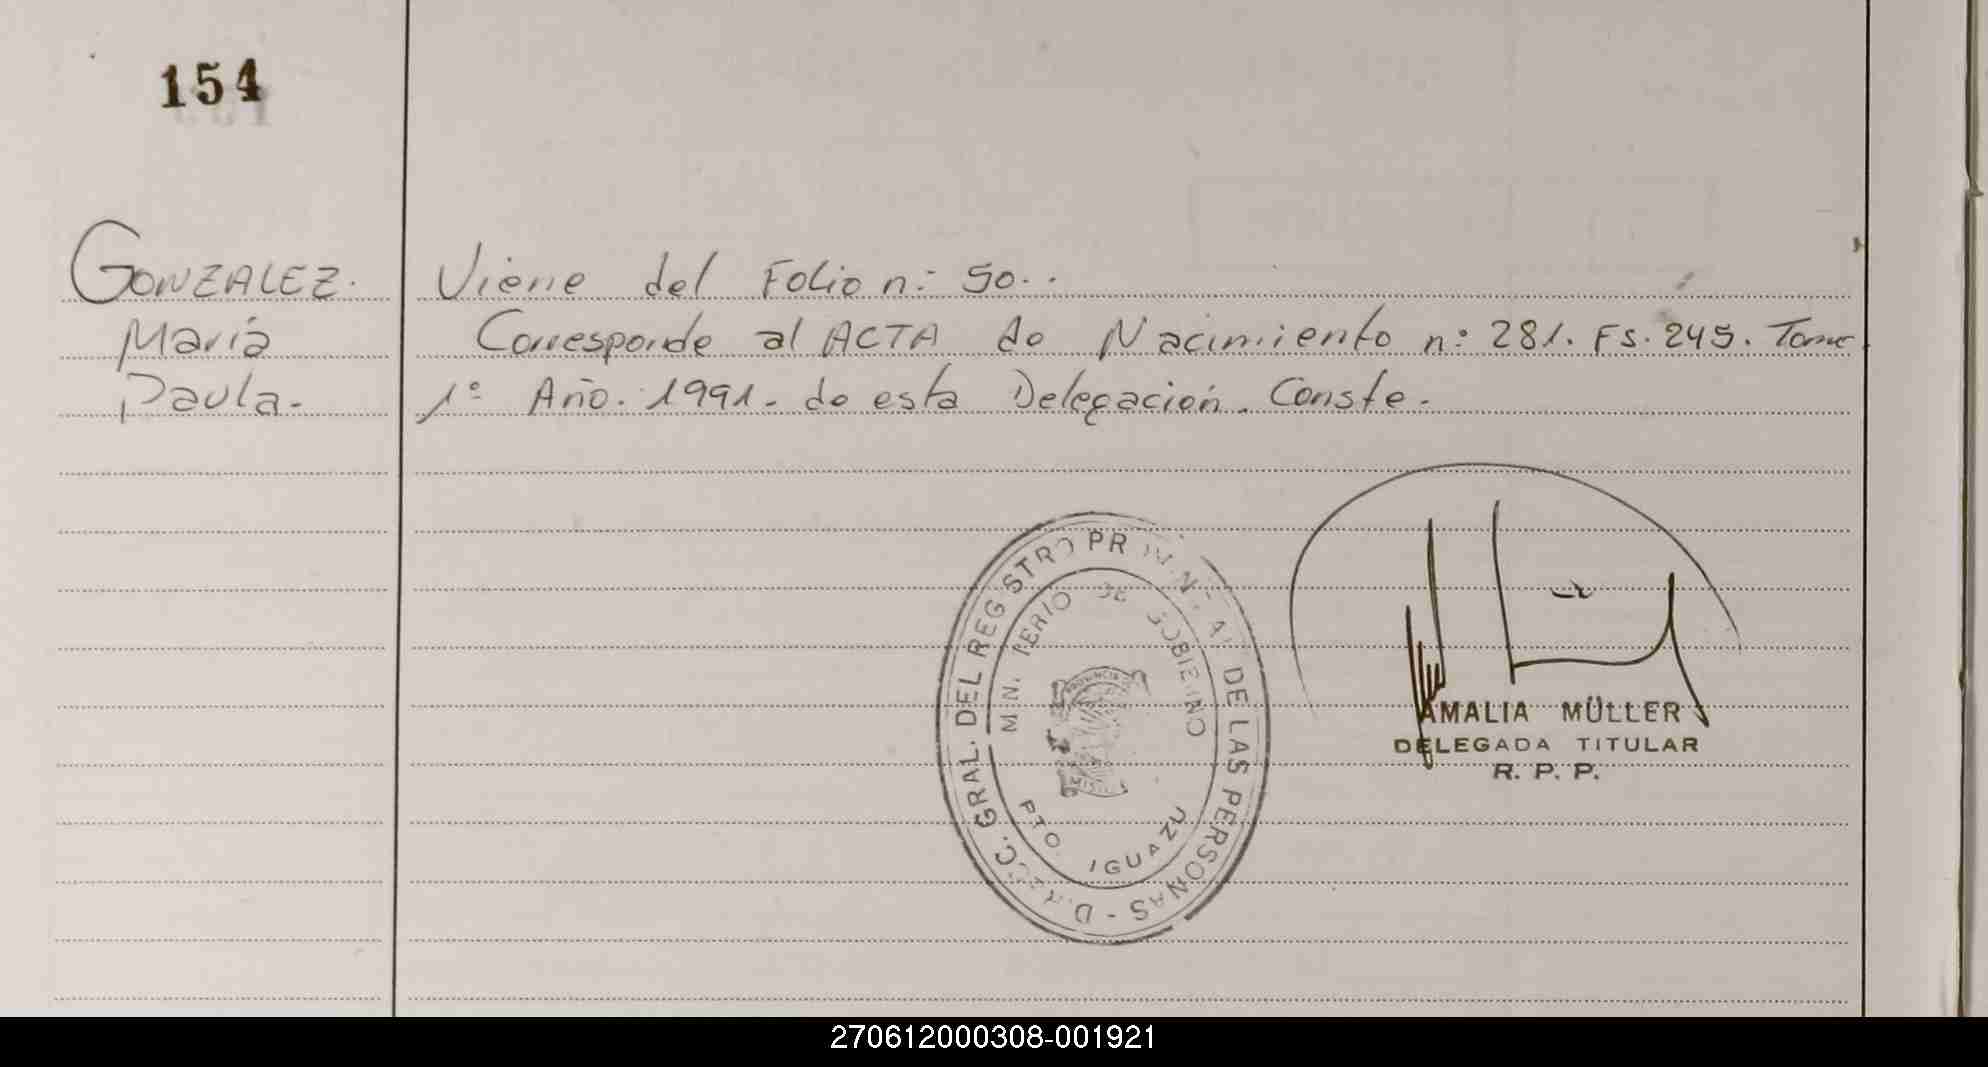 154
GONZALEZ. Viene del Folio n: 50..
María Corresponde al ACTA de Nacimiento n: 281. Fs. 245. Tomo
Paula. 1º Año. 1991. de esta Delegación. Conste.
DIRECC. GRAL. DEL REGISTRO PROVINCIAL DE LAS PERSONAS -
MINISTERIO DE GOBIERNO
PROVINCIA
PTO. IGUAZU
AMALIA MÜLLER
DELEGADA TITULAR
R. P. P.
270612000308-001921